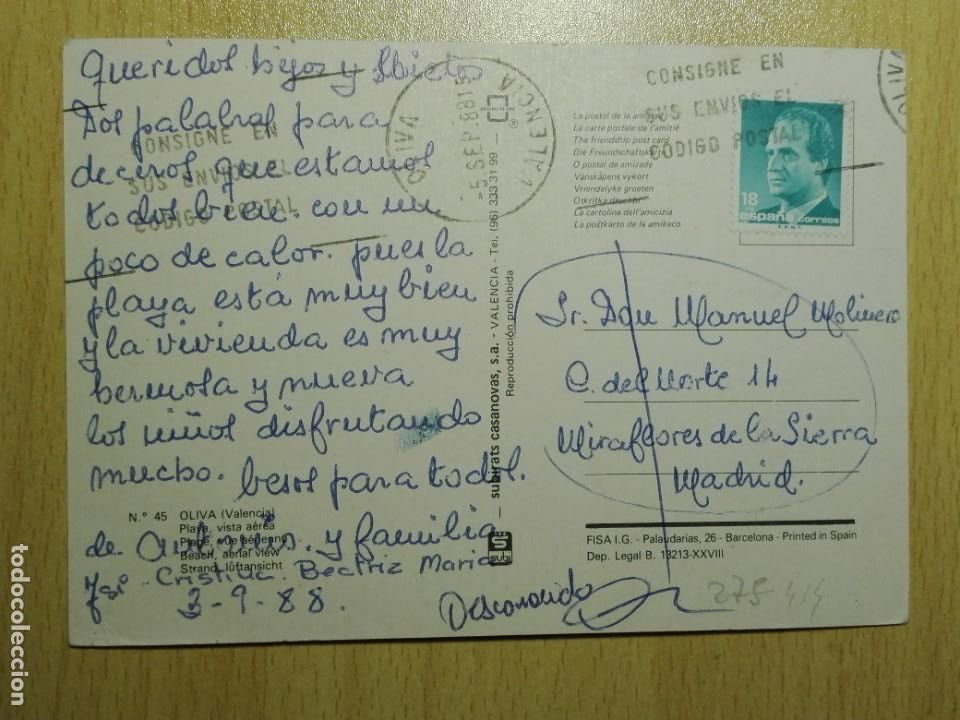 Queridos hijos y Nietos
Dos palabras para
deciros que estamos
todos bien. con un
poco de calor. pues la
playa está muy bien
y la vivienda es muy
hermosa y nueva
los niños disfrutando
mucho. besos para todos.
de y familia
Cristina. Beatriz María
3-9-88.
Nº 45 OLIVA (Valencia)
Playa, vista aérea
Plage, vue aérienne
Beach, aerial view
Strand, lüftansicht
OLIVA
VALENCIA
-5 SEP 88
CONSIGNE EN
SUS ENVIOS EL
CODIGO POSTAL
subirats casanovas, s.a. - VALENCIA - Tel. (96) 333 31 99
Reproducción prohibida
subi
La postal de la amistad
La carte postale de l'amitié
The friendship post card
Die Freundschaftskarte
O postal de amizade
Vänskåpens vykort
Vriendelyke groeten
Otkritka druchbi
La cartolina dell'amicizia
La poŝtkarto de la amikeco
CONSIGNE EN
SUS ENVIOS EL
CODIGO POSTAL
OLIVA
18
españa correos
F.N.M.T.
Sr. Don Manuel Molinero
C. del Norte 14
Miraflores de la Sierra
Madrid.
FISA I.G. - Palaudarias, 26 - Barcelona - Printed in Spain
Dep. Legal B. 13213-XXVIII
Desconocido
275
todocoleccion
todocoleccion